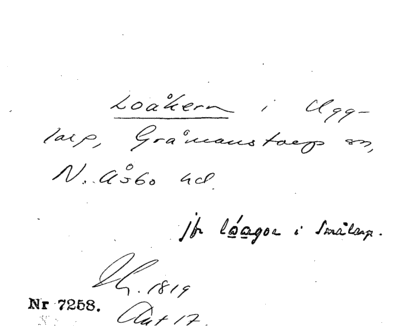 Loåkern i Ugg-
larp, Gråmanstorp sn,
N. Åsbo hd.
jfr låagor i Smålarp.
1819
Nr 7258.
Akt 17.